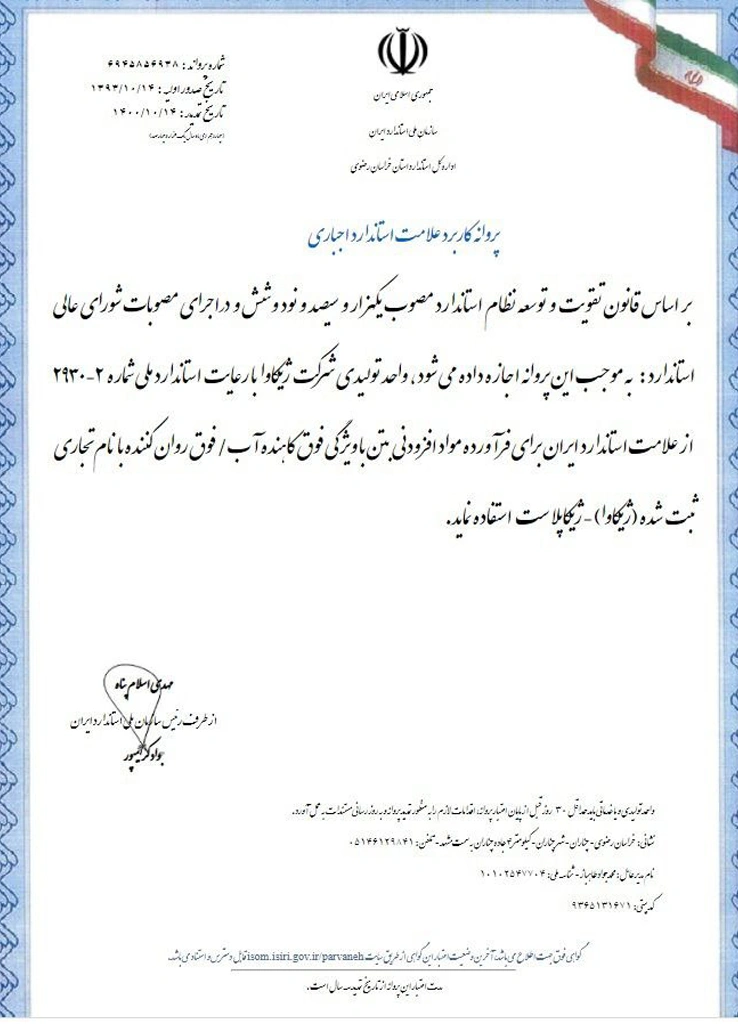 جمهوری اسلامی ایران
سازمان ملی استاندارد ایران
اداره کل استاندارد استان خراسان رضوی
شماره پروانه : ۶۹۴۵۸۵۶۹۳۸
تاریخ صدور اولیه : ۱۳۹۳/۱۰/۱۴
تاریخ تمدید : ۱۴۰۰/۱۰/۱۴
پروانه کاربرد علامت استاندارد اجباری
بر اساس قانون تقویت و توسعه نظام استاندارد مصوب یکهزار و سیصد و نود و شش و در اجرای مصوبات شورای عالی
استاندارد : به موجب این پروانه اجازه داده می شود، واحد تولیدی شرکت ژیکاوا با رعایت استاندارد ملی شماره ۲-۲۹۳۰
از علامت استاندارد ایران برای فرآورده مواد افزودنی بتن با ویژگی فوق کاهنده آب / فوق روان کننده با نام تجاری
ثبت شده (ژیکاوا) - ژیکاپلاست استفاده نماید.
مهدی اسلام پناه
از طرف رئیس سازمان ملی استاندارد ایران
جواد کرائیمپور
واحد تولیدی و یا خدماتی باید حداقل ۳۰ روز قبل از پایان اعتبار پروانه، اقدامات لازم را به منظور تمدید پروانه و به روز رسانی مستندات به عمل آورد.
نشانی: خراسان رضوی - چناران - شهر چناران - کیلومتر ۴ جاده چناران به سمت مشهد - تلفن: ۰۵۱۴۶۱۲۹۸۴۱
نام مدیر عامل: محمدجواد طاهباز - شناسه ملی: ۱۰۱۰۲۵۴۷۷۰۴
کد پستی: ۹۳۶۵۱۳۱۶۷۱
گواهی فوق جهت اطلاع می باشد، آخرین وضعیت اعتبار این گواهی از طریق سایت isom.isiri.gov.ir/parvaneh قابل دسترس و استناد می باشد.
مدت اعتبار این پروانه از تاریخ تمدید سه سال است.